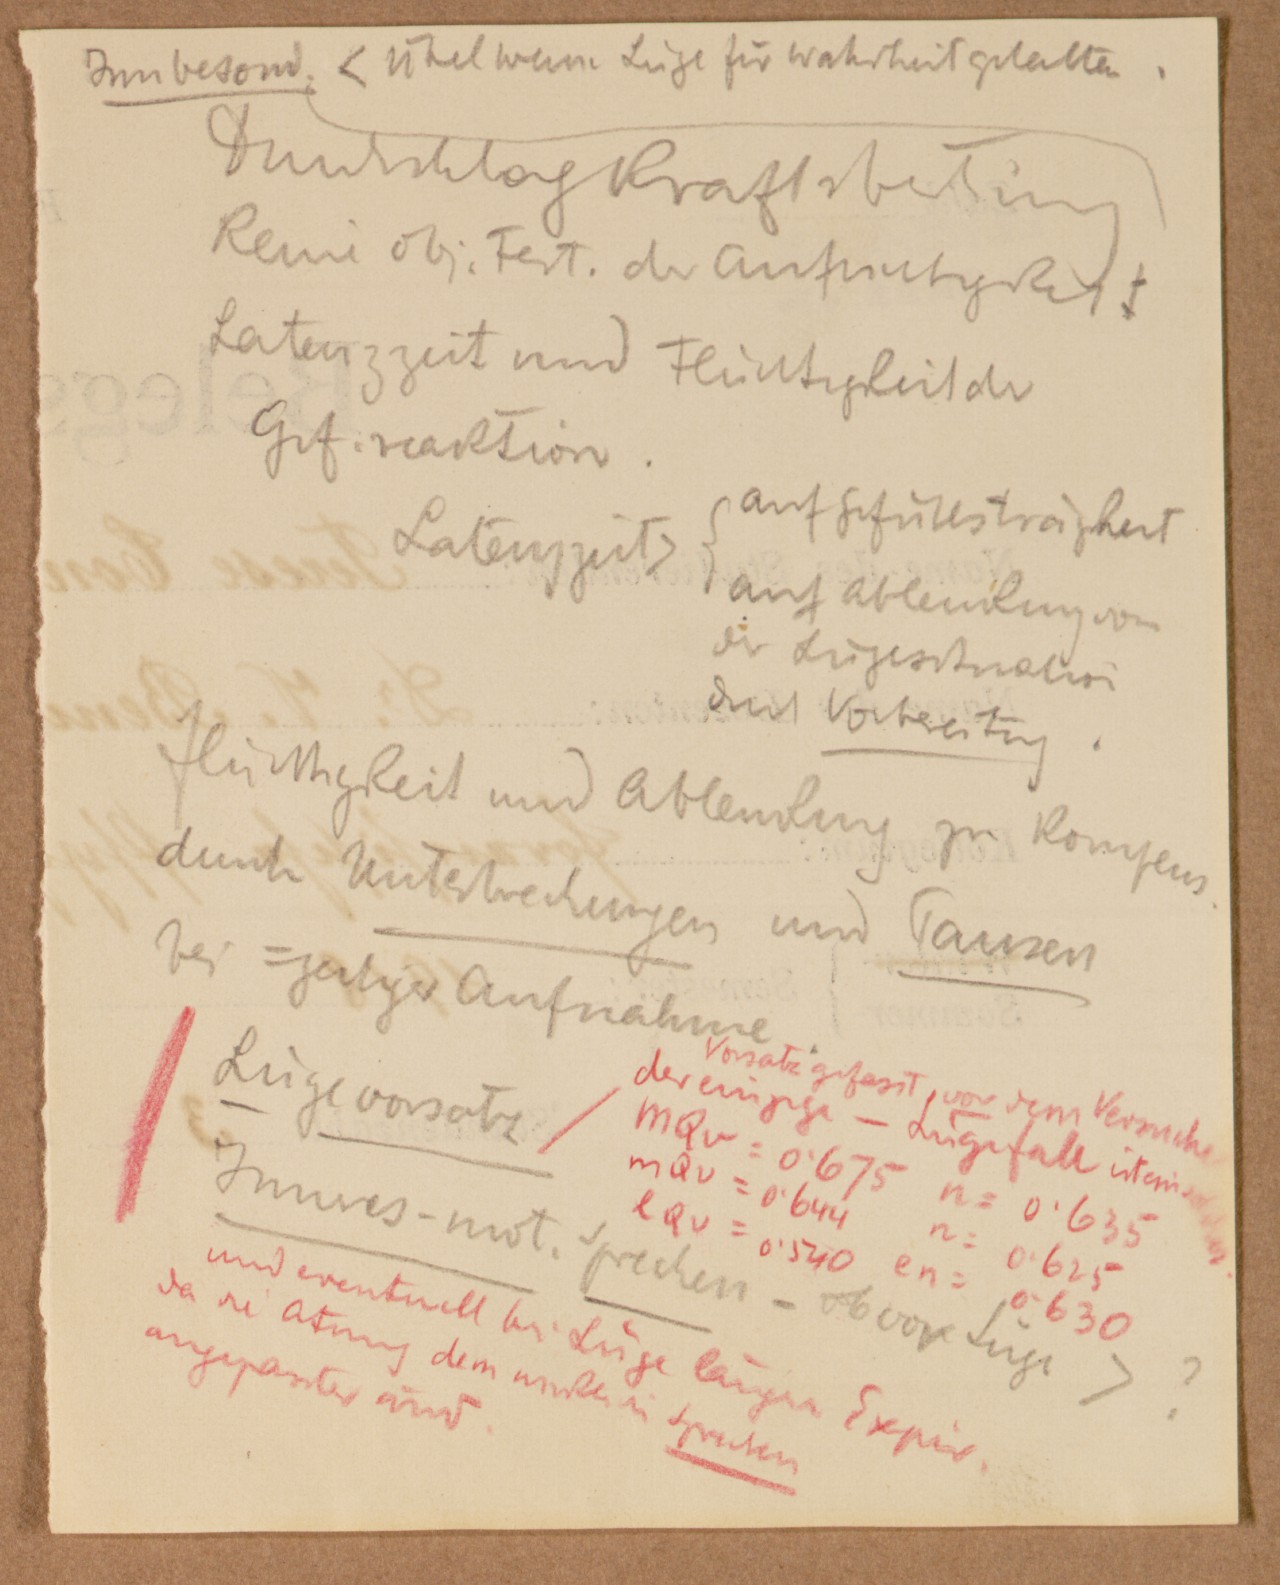 Insbesond. < Übel wenn Lüge für Wahrheit gehalten.
Durchschlagkraftsbeding
Reine obj. Fest. der Aufrichtigkeit
Latenzzeit und Flüchtigkeit der
Gef. reaktion.
Latenzzeit > { auf Gefühlsträgheit
auf Ablenkung von
der Lügesituation
durch Vorbereitung.
Flüchtigkeit und Ablenkung zu kompens.
durch Unterbrechungen und Pausen
bei =zeitiger Aufnahme.
Lügevorsatz /
Vorsatz gefasst, vor dem Versuche
der einzige – Lügefall
MQv = 0·675 n = 0·635
mQv = 0·644 n = 0·625
lQv = 0·540 en = 0·630
Inneres-mot. sprechen – ob vor Lüge > ?
und eventuell bei Lüge längere Expir.
da die Atmung dem sprechen
angepasster wird.
Belegs
Therese
Dr. V.
Semester
Sommer
3